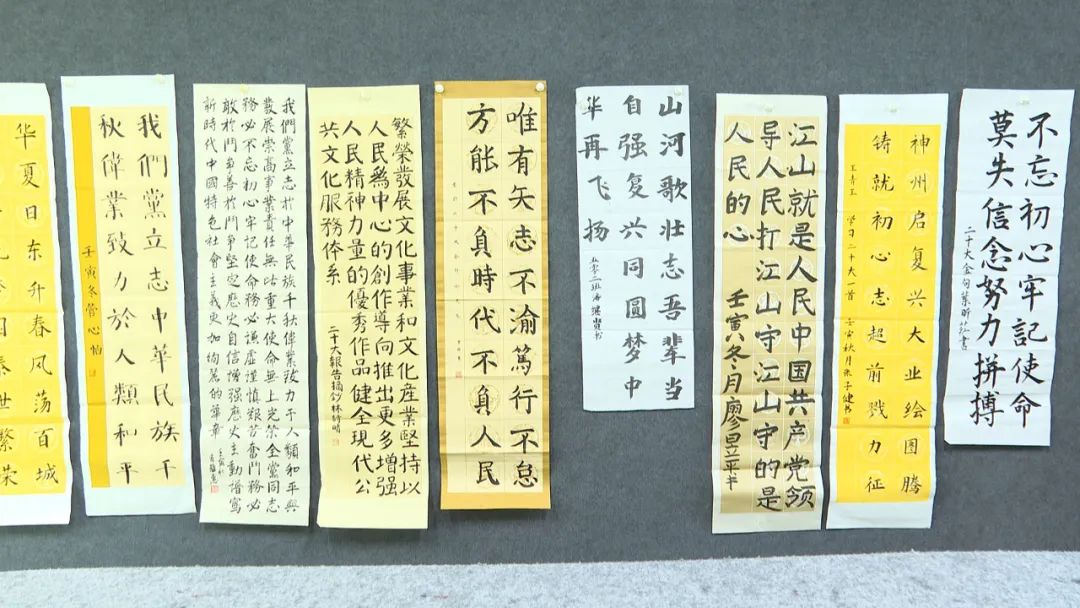 不忘初心牢記使命
莫失信念努力拼搏
神州启复兴大业绘图腾
铸就初心志超前戮力征
学习二十大一首 壬寅秋月朱子健书
江山就是人民中国共产党领
导人民打江山守江山守的是
人民的心 壬寅冬月廖昱平书
山河歌壮志吾辈当
自强复兴同圆梦中
华再飞扬
唯有矢志不渝篤行不怠
方能不負時代不負人民
繁榮發展文化事業和文化産業堅持以
人民爲中心的創作導向推出更多增强
人民精神力量的優秀作品健全現代公
共文化服務体系
二十大報告摘鈔林詩晴
我們黨立志於中華民族千秋偉業致力于人類和平與
發展崇高事業責任無比重大使命無上光榮全黨同志
務必不忘初心牢記使命務必謙虚謹慎艱苦奮鬥務必
敢於鬥争善於鬥争堅定歷史自信增强歷史主動譜寫
新時代中國特色社會主義更加絢麗的華章
我們黨立志中華民族千
秋偉業致力於人類和平
壬寅冬管心怡
华夏日东升春风荡百城
世繁荣